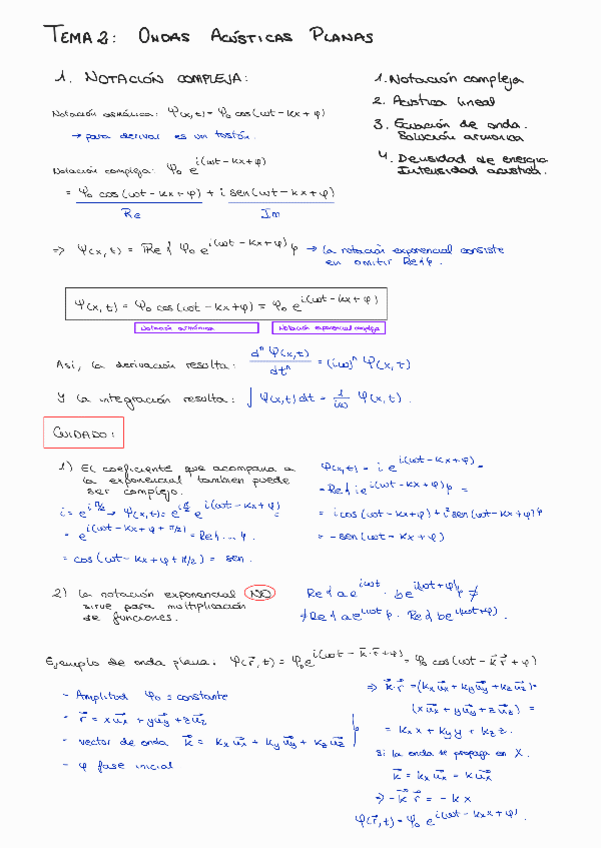 TEMA 2: ONDAS ACÚSTICAS PLANAS
1. NOTACIÓN COMPLEJA:
1. Notación compleja
2. Acústica lineal
3. Ecuación de onda.
Solución armónica
4. Densidad de energía
Intensidad acústica.
Notación armónica: Ψ(x,t) = Ψ₀ cos(ωt - kx + φ)
→ para derivar es un tostón.
Notación compleja: Ψ₀ e^i(ωt - kx + φ)
= Ψ₀ cos(ωt - kx + φ) + i sen(ωt - kx + φ)
Re Im
⇒ Ψ(x,t) = Re{Ψ₀ e^i(ωt - kx + φ)} → la notación exponencial consiste
en omitir Re{}.
Ψ(x,t) = Ψ₀ cos(ωt - kx + φ) = Ψ₀ e^i(ωt - kx + φ)
Notación armónica Notación exponencial compleja
Así, la derivación resulta: dⁿ Ψ(x,t) / dtⁿ = (iω)ⁿ Ψ(x,t)
Y la integración resulta: ∫ Ψ(x,t) dt = 1/iω Ψ(x,t).
CUIDADO:
1) El coeficiente que acompaña a
la exponencial también puede
ser complejo.
i = e^i π/2 → Ψ(x,t) = e^i π/2 e^i(ωt - kx + φ) =
= e^i(ωt - kx + φ + π/2) = Re{....}
= cos(ωt - kx + φ + π/2) = sen.
Ψ(x,t) = i e^i(ωt - kx + φ) =
= Re{i e^i(ωt - kx + φ)} =
= i cos(ωt - kx + φ) + i² sen(ωt - kx + φ)}
= - sen(ωt - kx + φ)
2) La notación exponencial NO
sirve para multiplicación
de funciones.
Re{a e^iωt · b e^i(ωt + φ)} ≠
≠ Re{a e^iωt} · Re{b e^i(ωt + φ)}.
Ejemplo de onda plana: Ψ(r⃗,t) = Ψ₀ e^i(ωt - k⃗·r⃗ + φ) = Ψ₀ cos(ωt - k⃗·r⃗ + φ)
- Amplitud Ψ₀ = constante
- r⃗ = x u⃗x + y u⃗y + z u⃗z
- vector de onda k⃗ = kx u⃗x + ky u⃗y + kz u⃗z
- φ fase inicial
⇒ k⃗·r⃗ = (kx u⃗x + ky u⃗y + kz u⃗z)·
(x u⃗x + y u⃗y + z u⃗z) =
= kx x + ky y + kz z.
Si la onda se propaga en X.
k⃗ = kx u⃗x = k u⃗x
⇒ -k⃗ r⃗ = -k x
Ψ(r⃗,t) = Ψ₀ e^i(ωt - kx x + φ).